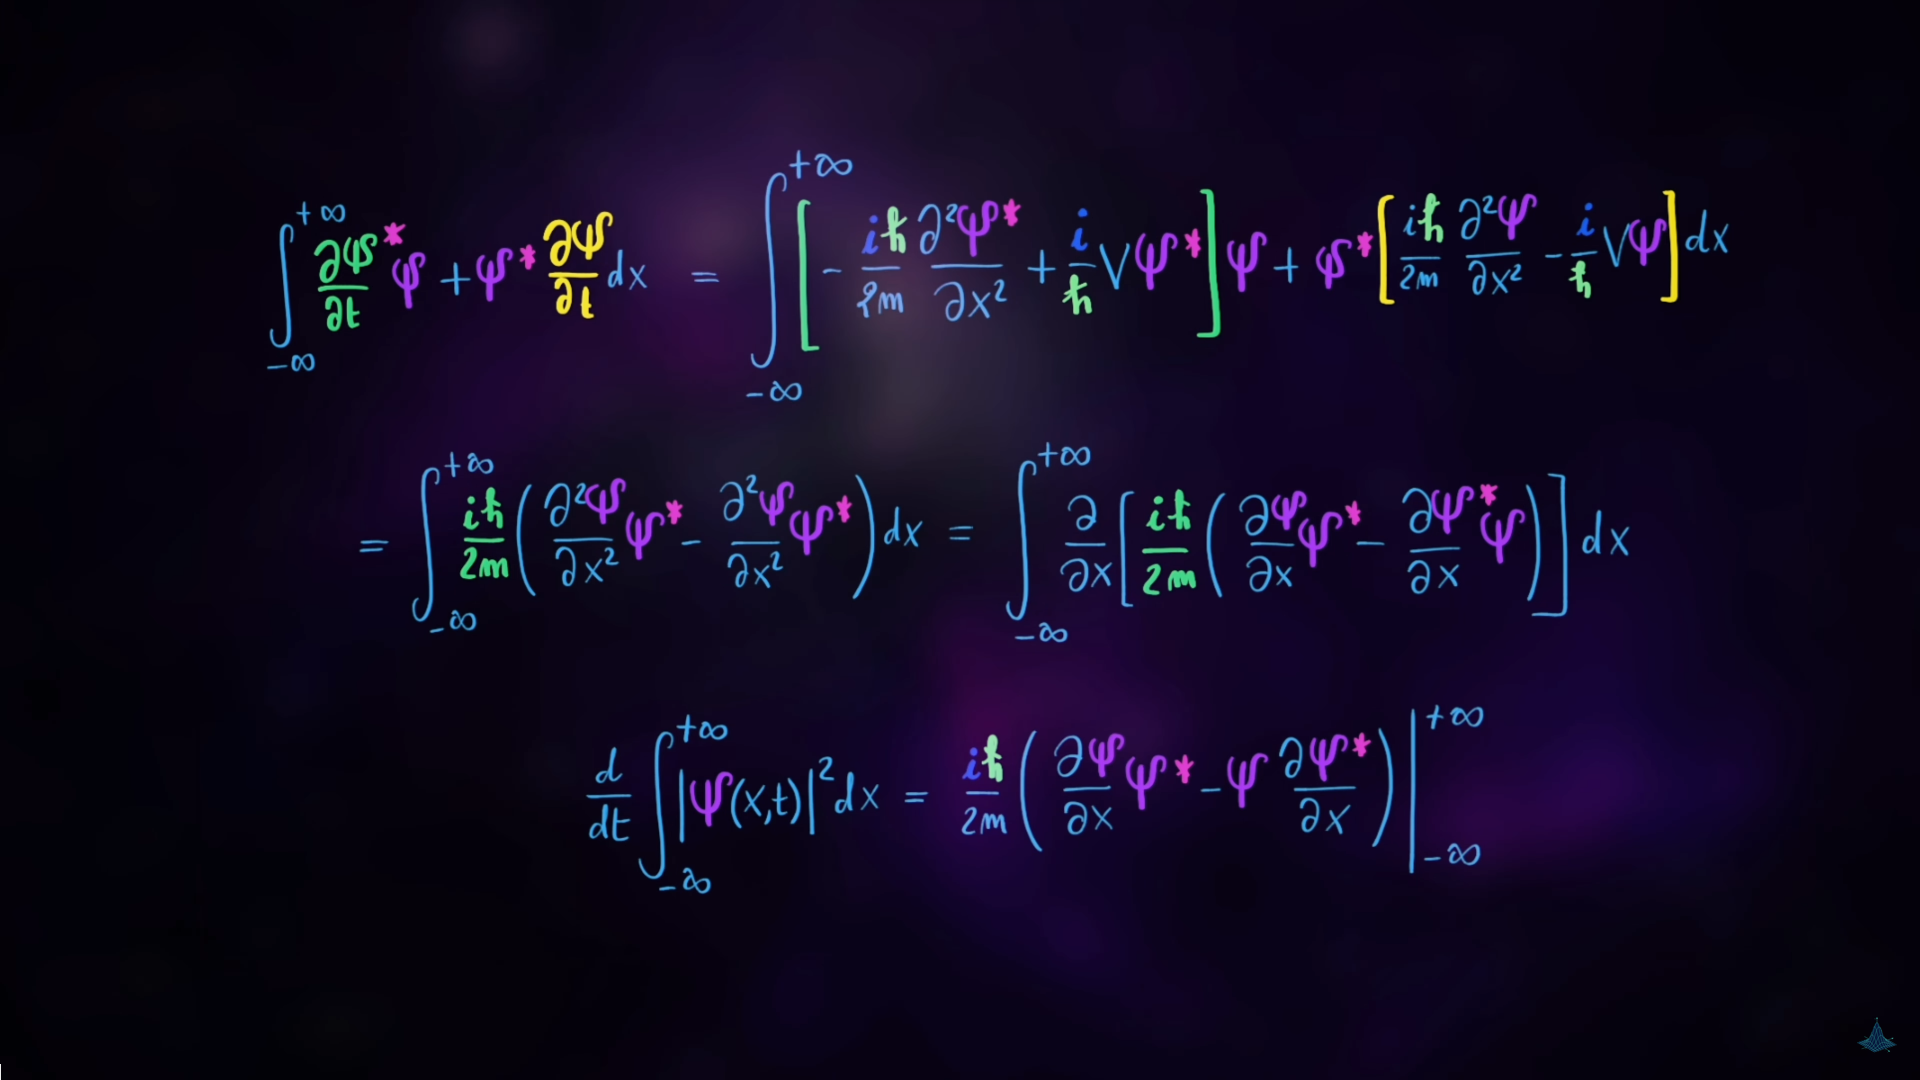 ∫_{-∞}^{+∞} ∂ψ*/∂t ψ + ψ* ∂ψ/∂t dx = ∫_{-∞}^{+∞} [ - iħ/2m ∂²ψ*/∂x² + i/ħ Vψ* ] ψ + ψ* [ iħ/2m ∂²ψ/∂x² - i/ħ Vψ ] dx
= ∫_{-∞}^{+∞} iħ/2m ( ∂²ψ/∂x² ψ* - ∂²ψ/∂x² ψ* ) dx = ∫_{-∞}^{+∞} ∂/∂x [ iħ/2m ( ∂ψ/∂x ψ* - ∂ψ*/∂x ψ ) ] dx
d/dt ∫_{-∞}^{+∞} |ψ(x,t)|² dx = iħ/2m ( ∂ψ/∂x ψ* - ψ ∂ψ*/∂x ) |_{-∞}^{+∞}